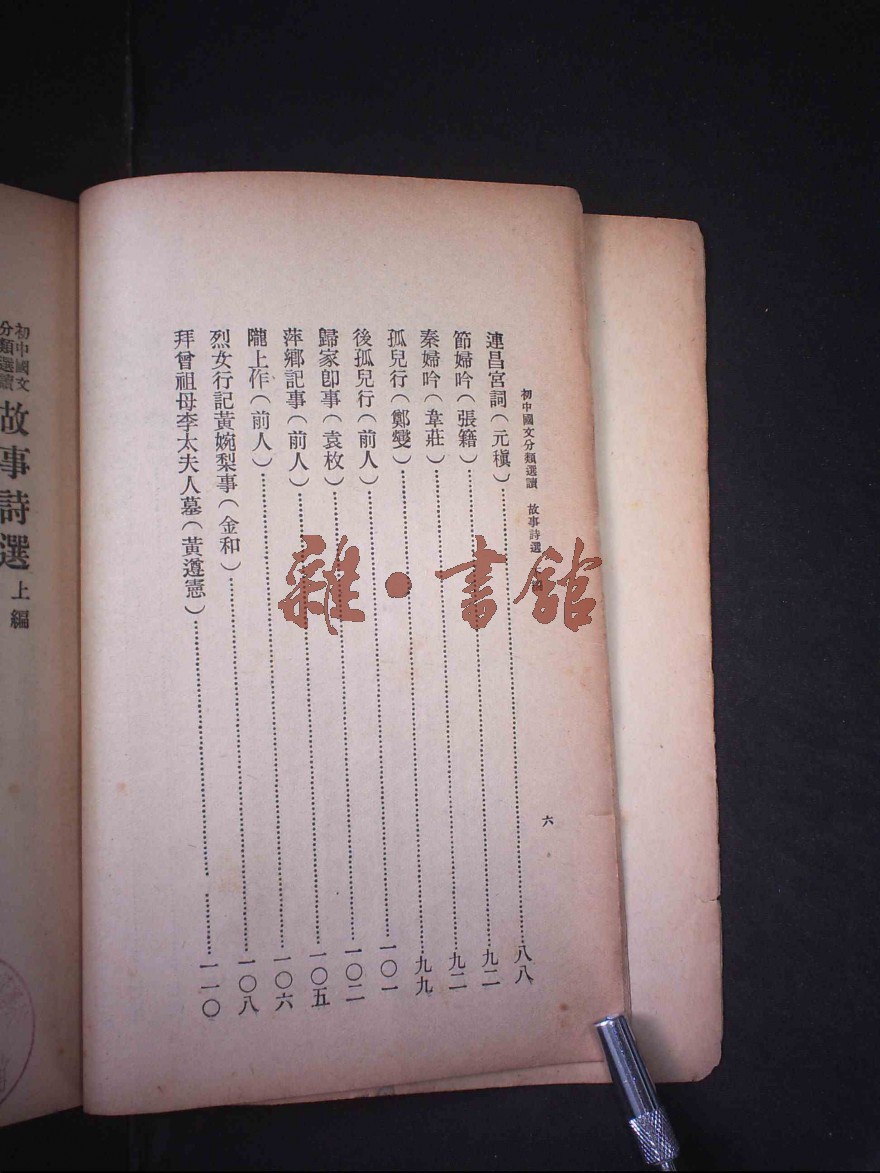 初中國文分類選讀 故事詩選
六
連昌宮詞(元稹)……八八
節婦吟(張籍)……九二
秦婦吟(韋莊)……九二
孤兒行(鄭燮)……九九
後孤兒行(前人)……一〇一
歸家卽事(袁枚)……一〇二
萍鄉記事(前人)……一〇五
隴上作(前人)……一〇六
烈女行記黃婉梨事(金和)……一〇八
拜曾祖母李太夫人墓(黃遵憲)……一一〇
初中國文
分類選讀
故事詩選 上編
雜·書館